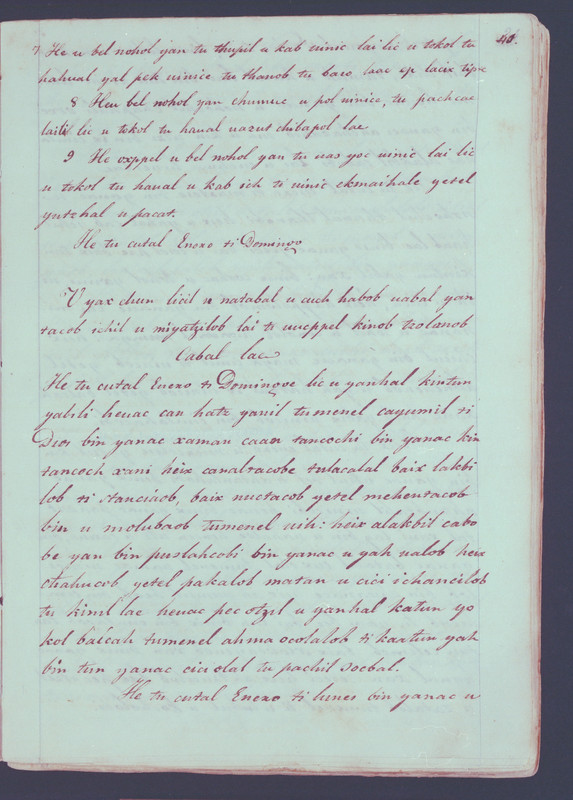 40.
7 He u bel nohol yan tu thupil u kab uinic lai lic u tokol tu
hahual yal pek uinice tu thanob tu baco laac
8 Heu bel nohol yan chumuc u pol uinice, tu pach cae
laitili lic u tokol tu haual uazut chibapol lae
9 He oxppel u bel nohol yan tu uas yoc uinic lai lic
u tokol tu haual u kab ich ti uinic ekmaihale yetel
yutzhal u pacat.
He tu cutal Enero ti Domingo
U yax chun licil u natabal u cuch habob uabal yan
tacob ichil u miyatzilob lai ti uucppel kinob tzolanob
Cabal lae
He tu cutal Enero ti Domingoe lic u yanhal kintun
yabili heuac can hatz yanil tumenel cayumil ti
Dios bin yanac xaman caan tancochi bin yanac kin
tancoch xani heix canaltacobe tulacalal baix lakbi
lob ti stanciaob, baix nuctacob yetel mehentacob
bin u molubaob tumenel uih: heix alakbil cabo
be yan bin puslahcobi bin yanac u yah ualob heix
chahucob yetel pakalob matan u cici ichancilob
tu kinil lae heuac pec otzil u yanhal katun yo
kol balcah tumenel ahma ocolalob ti kaatun yah
bin tun yanac cicolal tu pachil soebal.
He tu cutal Enero ti lunes bin yanac u